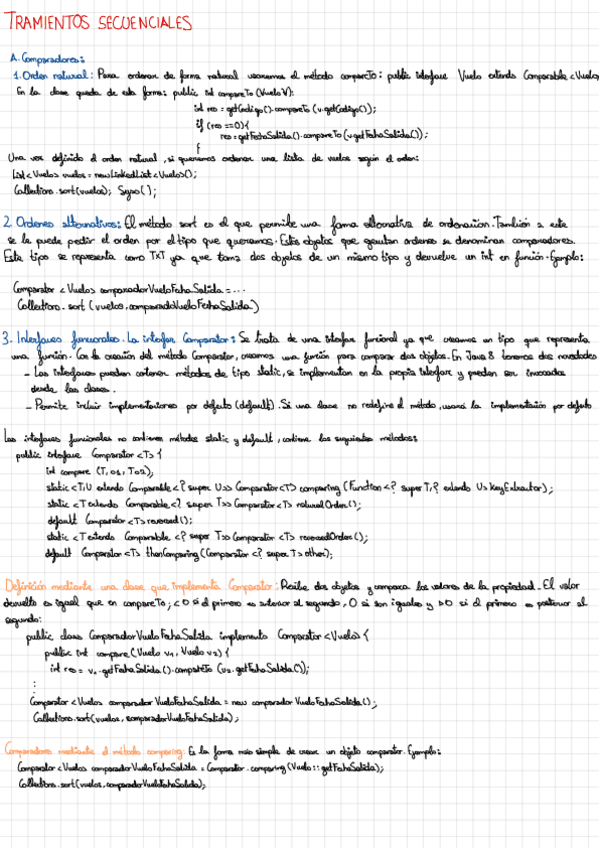 TRAMIENTOS SECUENCIALES
A. Comparadores:
1. Orden natural: Para ordenar de forma natural usaremos el método compareTo: public interface Vuelo extends Comparable<Vuelo>
En la clase queda de esta forma: public int compareTo (Vuelo v):
int res = getCodigo().compareTo (v.getCodigo());
if (res == 0){
res = getFechaSalida().compareTo (v.getFechaSalida());
}
Una vez definido el orden natural, si queremos ordenar una lista de vuelos según el orden:
List<Vuelo> vuelos = new LinkedList<Vuelo>();
Collections.sort(vuelos); Syso();
2. Ordenes alternativos: El método sort es el que permite una forma alternativa de ordenación. También a este
se le puede pedir el orden por el tipo que queramos. Estos objetos que aportan ordenes se denominan comparadores.
Este tipo se representa como TxT ya que toma dos objetos de un mismo tipo y devuelve un int en función. Ejemplo:
Comparator<Vuelo> comparadorVueloFechaSalida = ...
Collections.sort (vuelos, comparadorVueloFechaSalida)
3. Interfaces funcionales. La interfaz Comparator: Se trata de una interfaz funcional ya que creamos un tipo que representa
una función. Con la creación del método Comparator, creamos una función para comparar dos objetos. En Java 8 tenemos dos novedades
- Las interfaces pueden contener métodos de tipo static, se implementan en la propia interfaz y pueden ser invocados
desde las clases.
- Permite incluir implementaciones por defecto (default). Si una clase no redefine el método, usará la implementación por defecto
Las interfaces funcionales no contienen métodos static y default, contiene los siguientes métodos:
public interface Comparator<T> {
int compare (T, o1, T o2);
static <T,U extends Comparable<? super U>> Comparator<T> comparing (Function<? super T, ? extends U> keyExtractor);
static <T extends Comparable<? super T>> Comparator<T> naturalOrder();
default Comparator<T> reversed();
static <T extends Comparable <? super T>> Comparator<T> reversedOrder();
default Comparator<T> thenComparing (Comparator <? super T> other);
Definición mediante una clase que implementa Comparator: Recibe dos objetos y compara los valores de la propiedad. El valor
devuelto es igual que en compareTo; <0 si el primero es anterior al segundo, 0 si son iguales y >0 si el primero es posterior al
segundo:
public class ComparadorVueloFechaSalida implements Comparator<Vuelo> {
public int compare (Vuelo v1, Vuelo v2) {
int res = v1.getFechaSalida().compareTo (v2.getFechaSalida());
:
:
Comparator<Vuelo> comparadorVueloFechaSalida = new comparadorVueloFechaSalida();
Collections.sort(vuelos, comparadorVueloFechaSalida);
Comparadores mediante el método comparing: Es la forma más simple de crear un objeto comparator. Ejemplo:
Comparator<Vuelo> comparadorVueloFechaSalida = Comparator.comparing (Vuelo::getFechaSalida);
Collections.sort(vuelos, comparadorVueloFechaSalida);